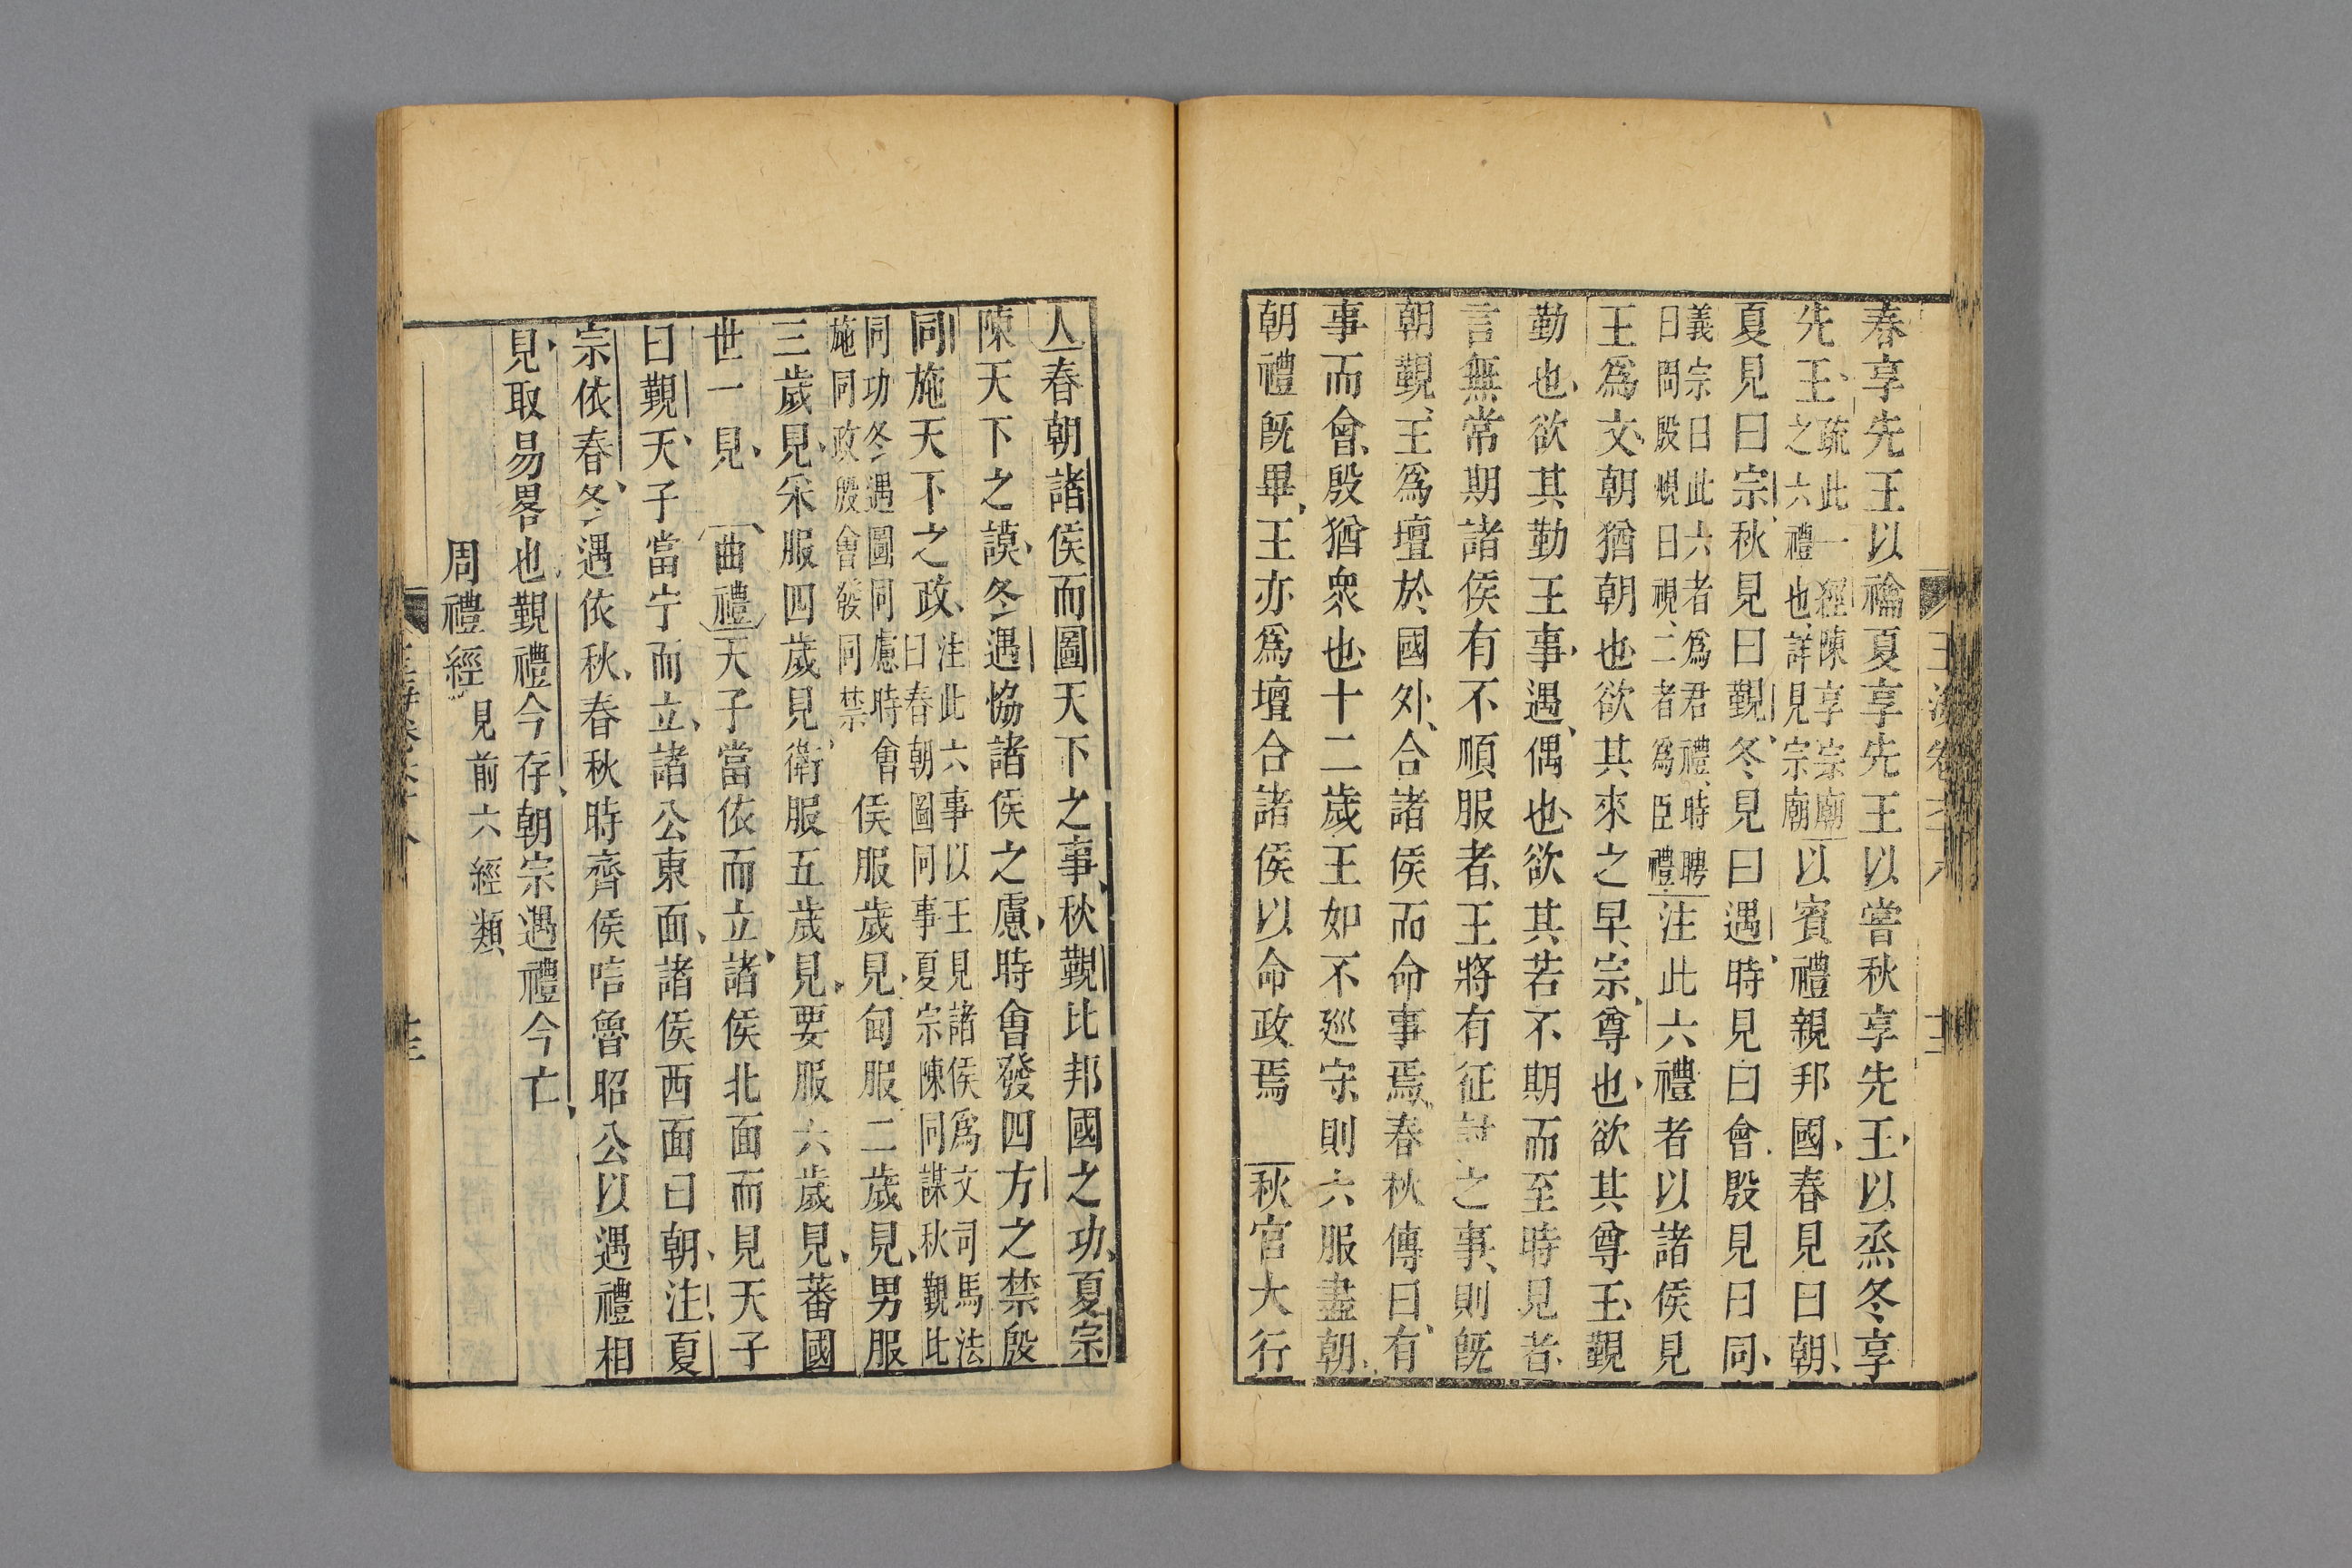 春享先王以禴夏享先王以嘗秋享先王以烝冬享
先王疏此一經陳享宗廟
之六禮也詳見宗廟以賓禮親邦國春見曰朝
夏見曰宗秋見曰覲冬見曰遇時見曰會殷見曰同
義宗曰此六者爲君禮時聘
曰問殷覜曰視二者爲臣禮注此六禮者以諸侯見
王爲文朝猶朝也欲其來之早宗尊也欲其尊王覲
勤也欲其勤王事遇偶也欲其若不期而至時見者
言無常期諸侯有不順服者王將有征之事則旣
朝覲王爲壇於國外合諸侯而命事焉春秋傳曰有
事而會殷猶衆也十二歲王如不廵守則六服盡朝
朝禮旣畢王亦爲壇合諸侯以命政焉 秋官大行
人春朝諸侯而圖天下之事秋覲比邦國之功夏宗
陳天下之謨冬遇恊諸侯之慮時會發四方之禁殷
同施天下之政注此六事以王見諸侯爲文司馬法
曰春朝圖同事夏宗陳同謀秋覲比
同功冬遇圖同慮時會
施同政殷會發同禁侯服歲見甸服二歲見男服
三歲見采服四歲見衛服五歲見要服六歲見蕃國
世一見 曲禮天子當依而立諸侯北面而見天子
曰覲天子當宁而立諸公東面諸侯西面曰朝注夏
宗依春冬遇依秋春秋時齊侯唁魯昭公以遇禮相
見取易畧也覲禮今存朝宗遇禮今亡
周禮經見前六經類